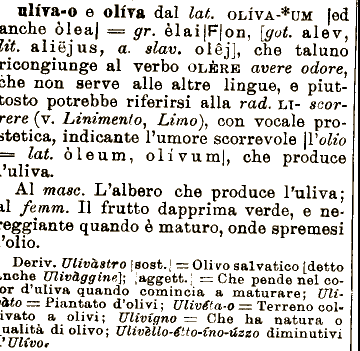 ulíva-o e olíva dal lat. OLÍVA-*UM [ed
anche òlea] = gr. èlai[F]on, [got. alev,
lit. aliëjus, a. slav. olêj], che taluno
ricongiunge al verbo OLÈRE avere odore,
che non serve alle altre lingue, e piut-
tosto potrebbe riferirsi alla rad. LI- scor-
rere (v. Linimento, Limo), con vocale pro-
stetica, indicante l'umore scorrevole [l'olio
= lat. òleum, olívum], che produce
l'uliva.
Al masc. L'albero che produce l'uliva;
al femm. Il frutto dapprima verde, e ne-
reggiante quando è maturo, onde spremesi
l'olio.
Deriv. Ulivàstro [sost.] = Olivo salvatico [detto
anche Ulivàggine]; [aggett.] = Che pende nel co-
lor d'uliva quando comincia a maturare; Uli-
vàto = Piantato d'olivi; Ulivéta-o = Terreno col-
tivato a olivi; Ulivigno = Che ha natura o
qualità di olivo; Ulivèllo-étto-íno-úzzo diminutivi
d'Ulívo.